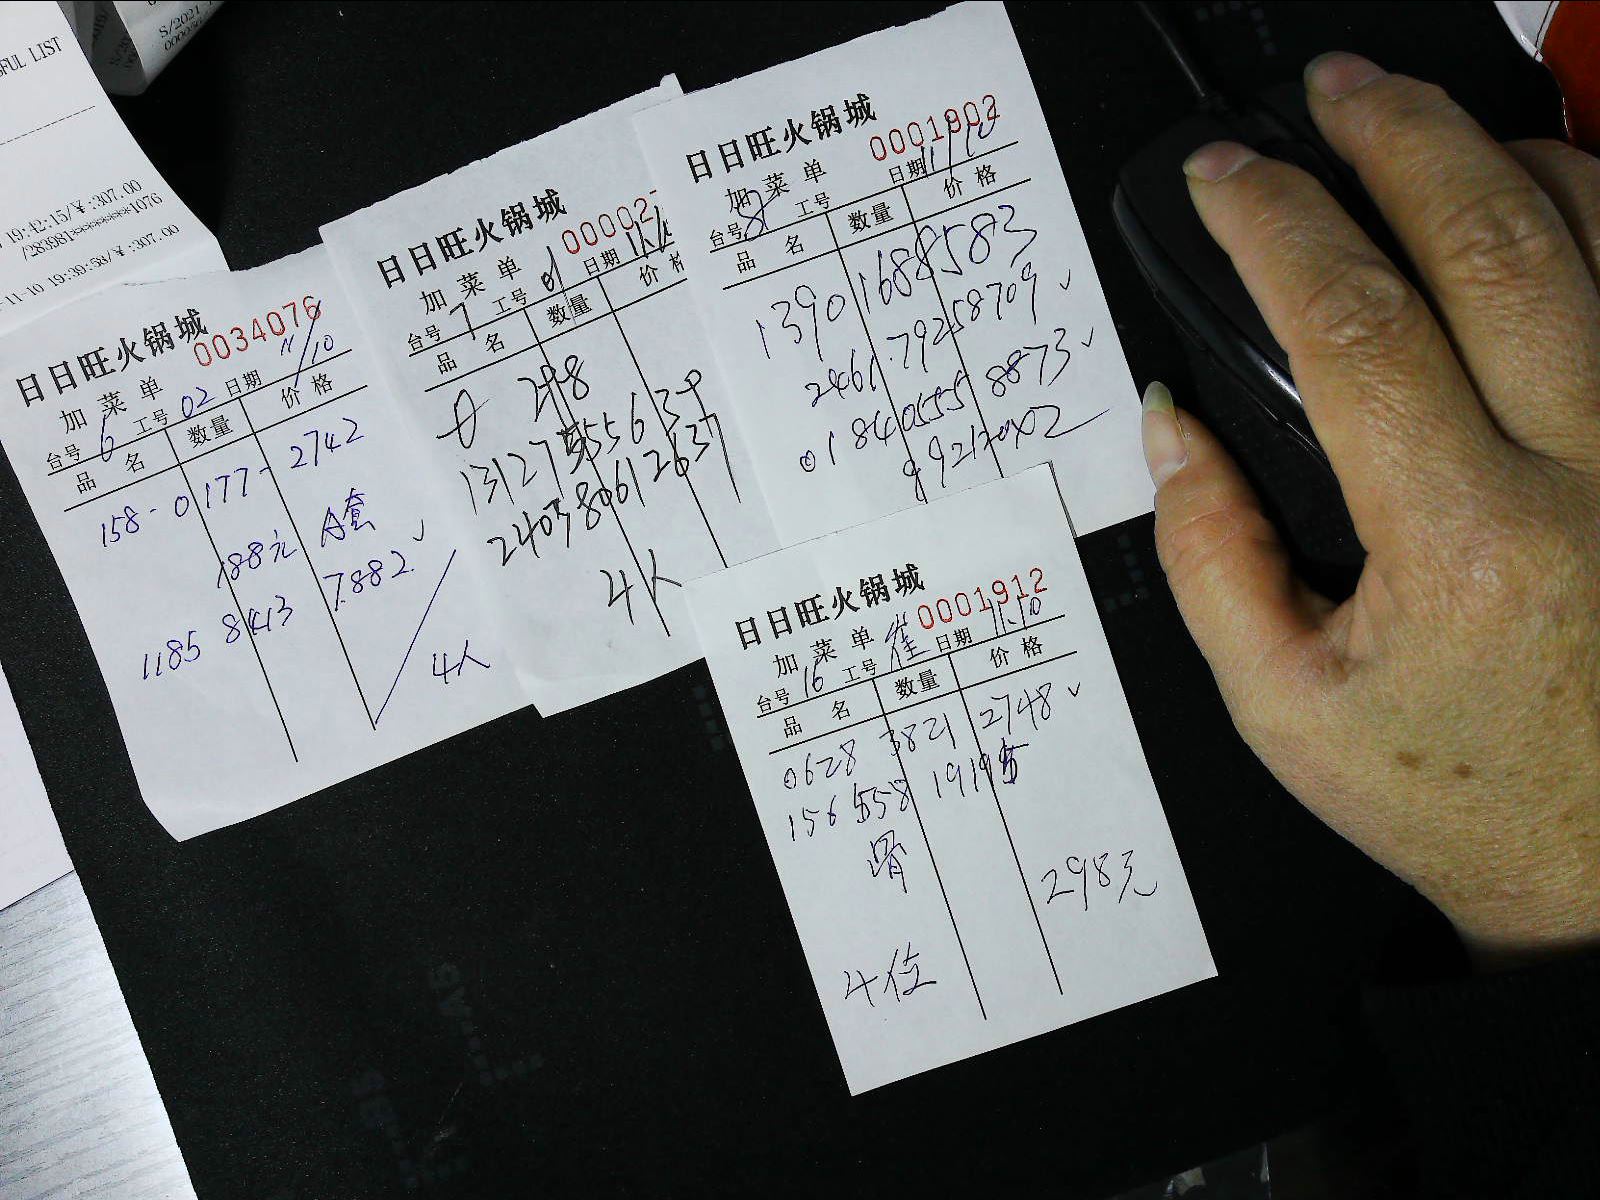 FUL LIST
19:42:15/¥:307.00
/283981*******1076
11-10 19:39:58/¥:307.00
S/2021
日日旺火锅城
0034076
加菜单
台号 6 工号 02 日期 11/10
品名 数量 价格
158-0177-2742
188元 A套
1185 8413 7882 √
4人
日日旺火锅城
00002
加菜单
台号 7 工号 日期
品名 数量 价格
240380612637
4人
日日旺火锅城
0001902
加菜单
台号 8 工号 日期 11/10
品名 数量 价格
1390 1688583
2461 79258709 √
01840555 8873 √
日日旺火锅城
0001912
加菜单
台号 16 工号 崔 日期 11.10
品名 数量 价格
0628 3821 2748 √
156 558 19195
骨
298元
4位